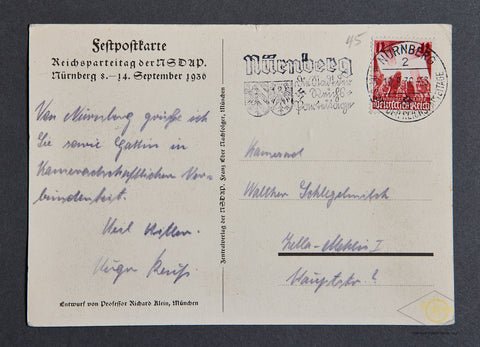 Festpostkarte
Reichsparteitag der NSDAP.
Nürnberg 8.–14. September 1936
45
Nürnberg
die Stadt der
Reichs-
Parteitage
NÜRNBERG
2
12
Deutsches Reich
Von Nürnberg grüße ich
Sie sowie Gattin in
Kameradschaftlicher Ver-
bundenheit.
Heil Hitler.
Hugo
Zentralverlag der NSDAP. Franz Eher Nachfolger, München
Kamerad
Walther Schlegelmilch
Zella-Mehlis I
Hauptstr. ?
Entwurf von Professor Richard Klein, München